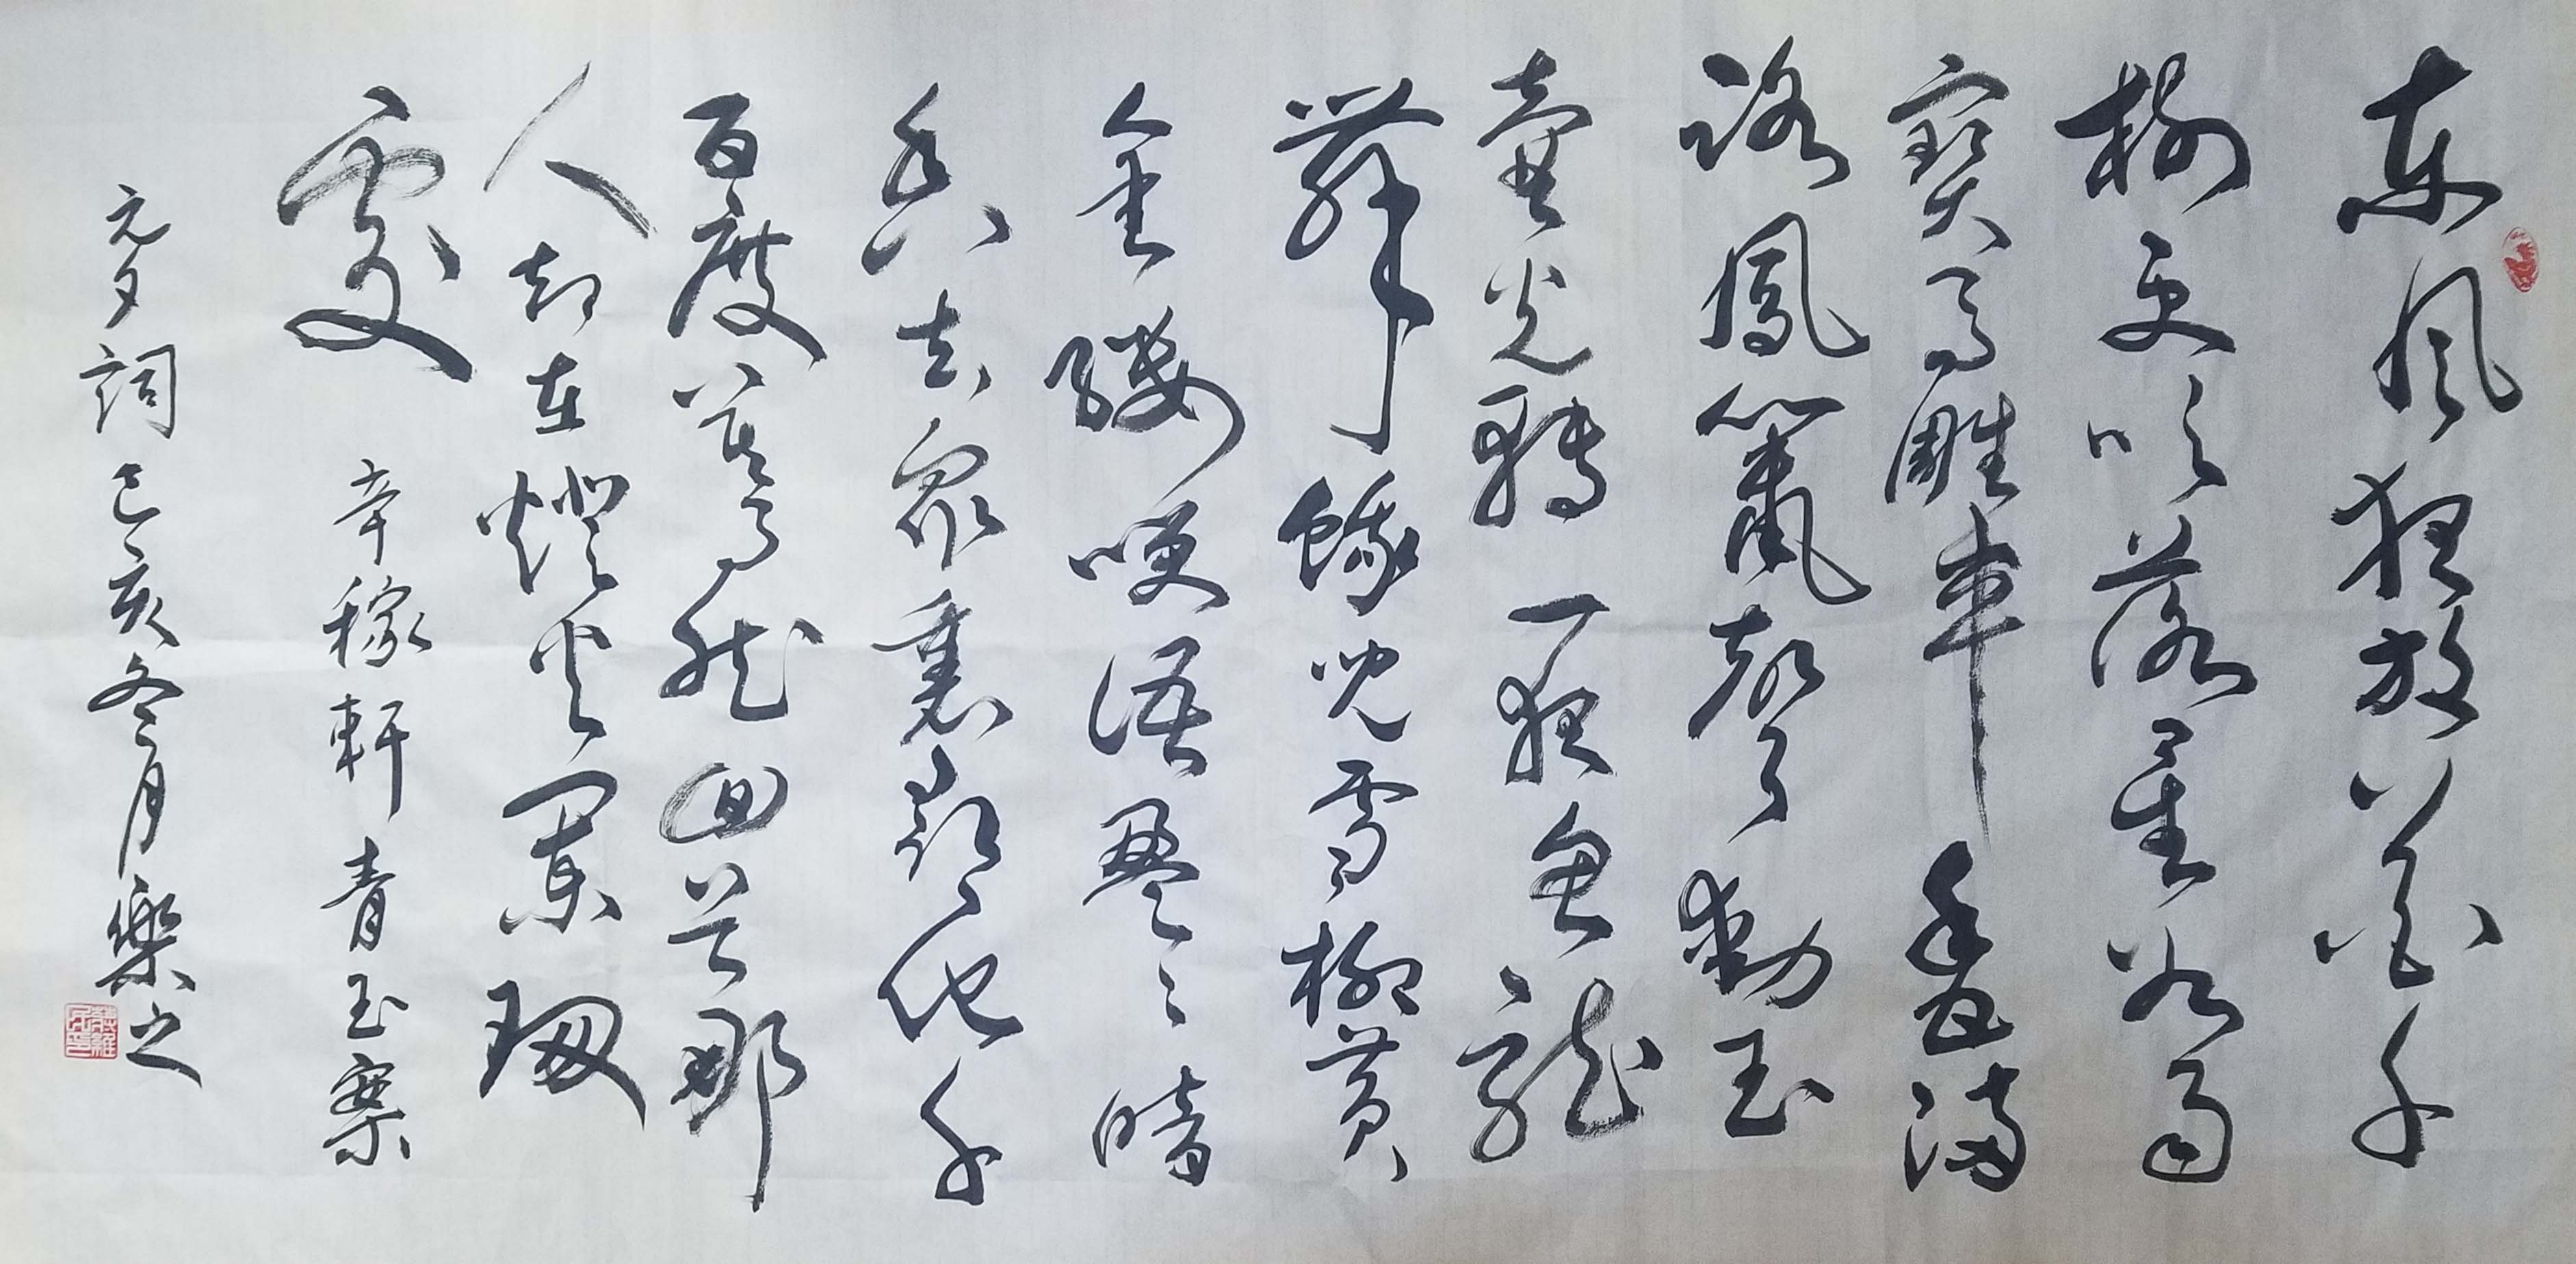 東風夜放花千
樹更吹落星如雨
寶馬雕車香滿
路鳳簫聲動玉
壺光轉一夜魚龍
舞蛾兒雪柳黃
金縷咲語盈々暗
香去衆裏尋他千
百度驀然回首那
人却在燈火闌珊
處 辛稼軒青玉案
元夕詞己亥冬月樂之